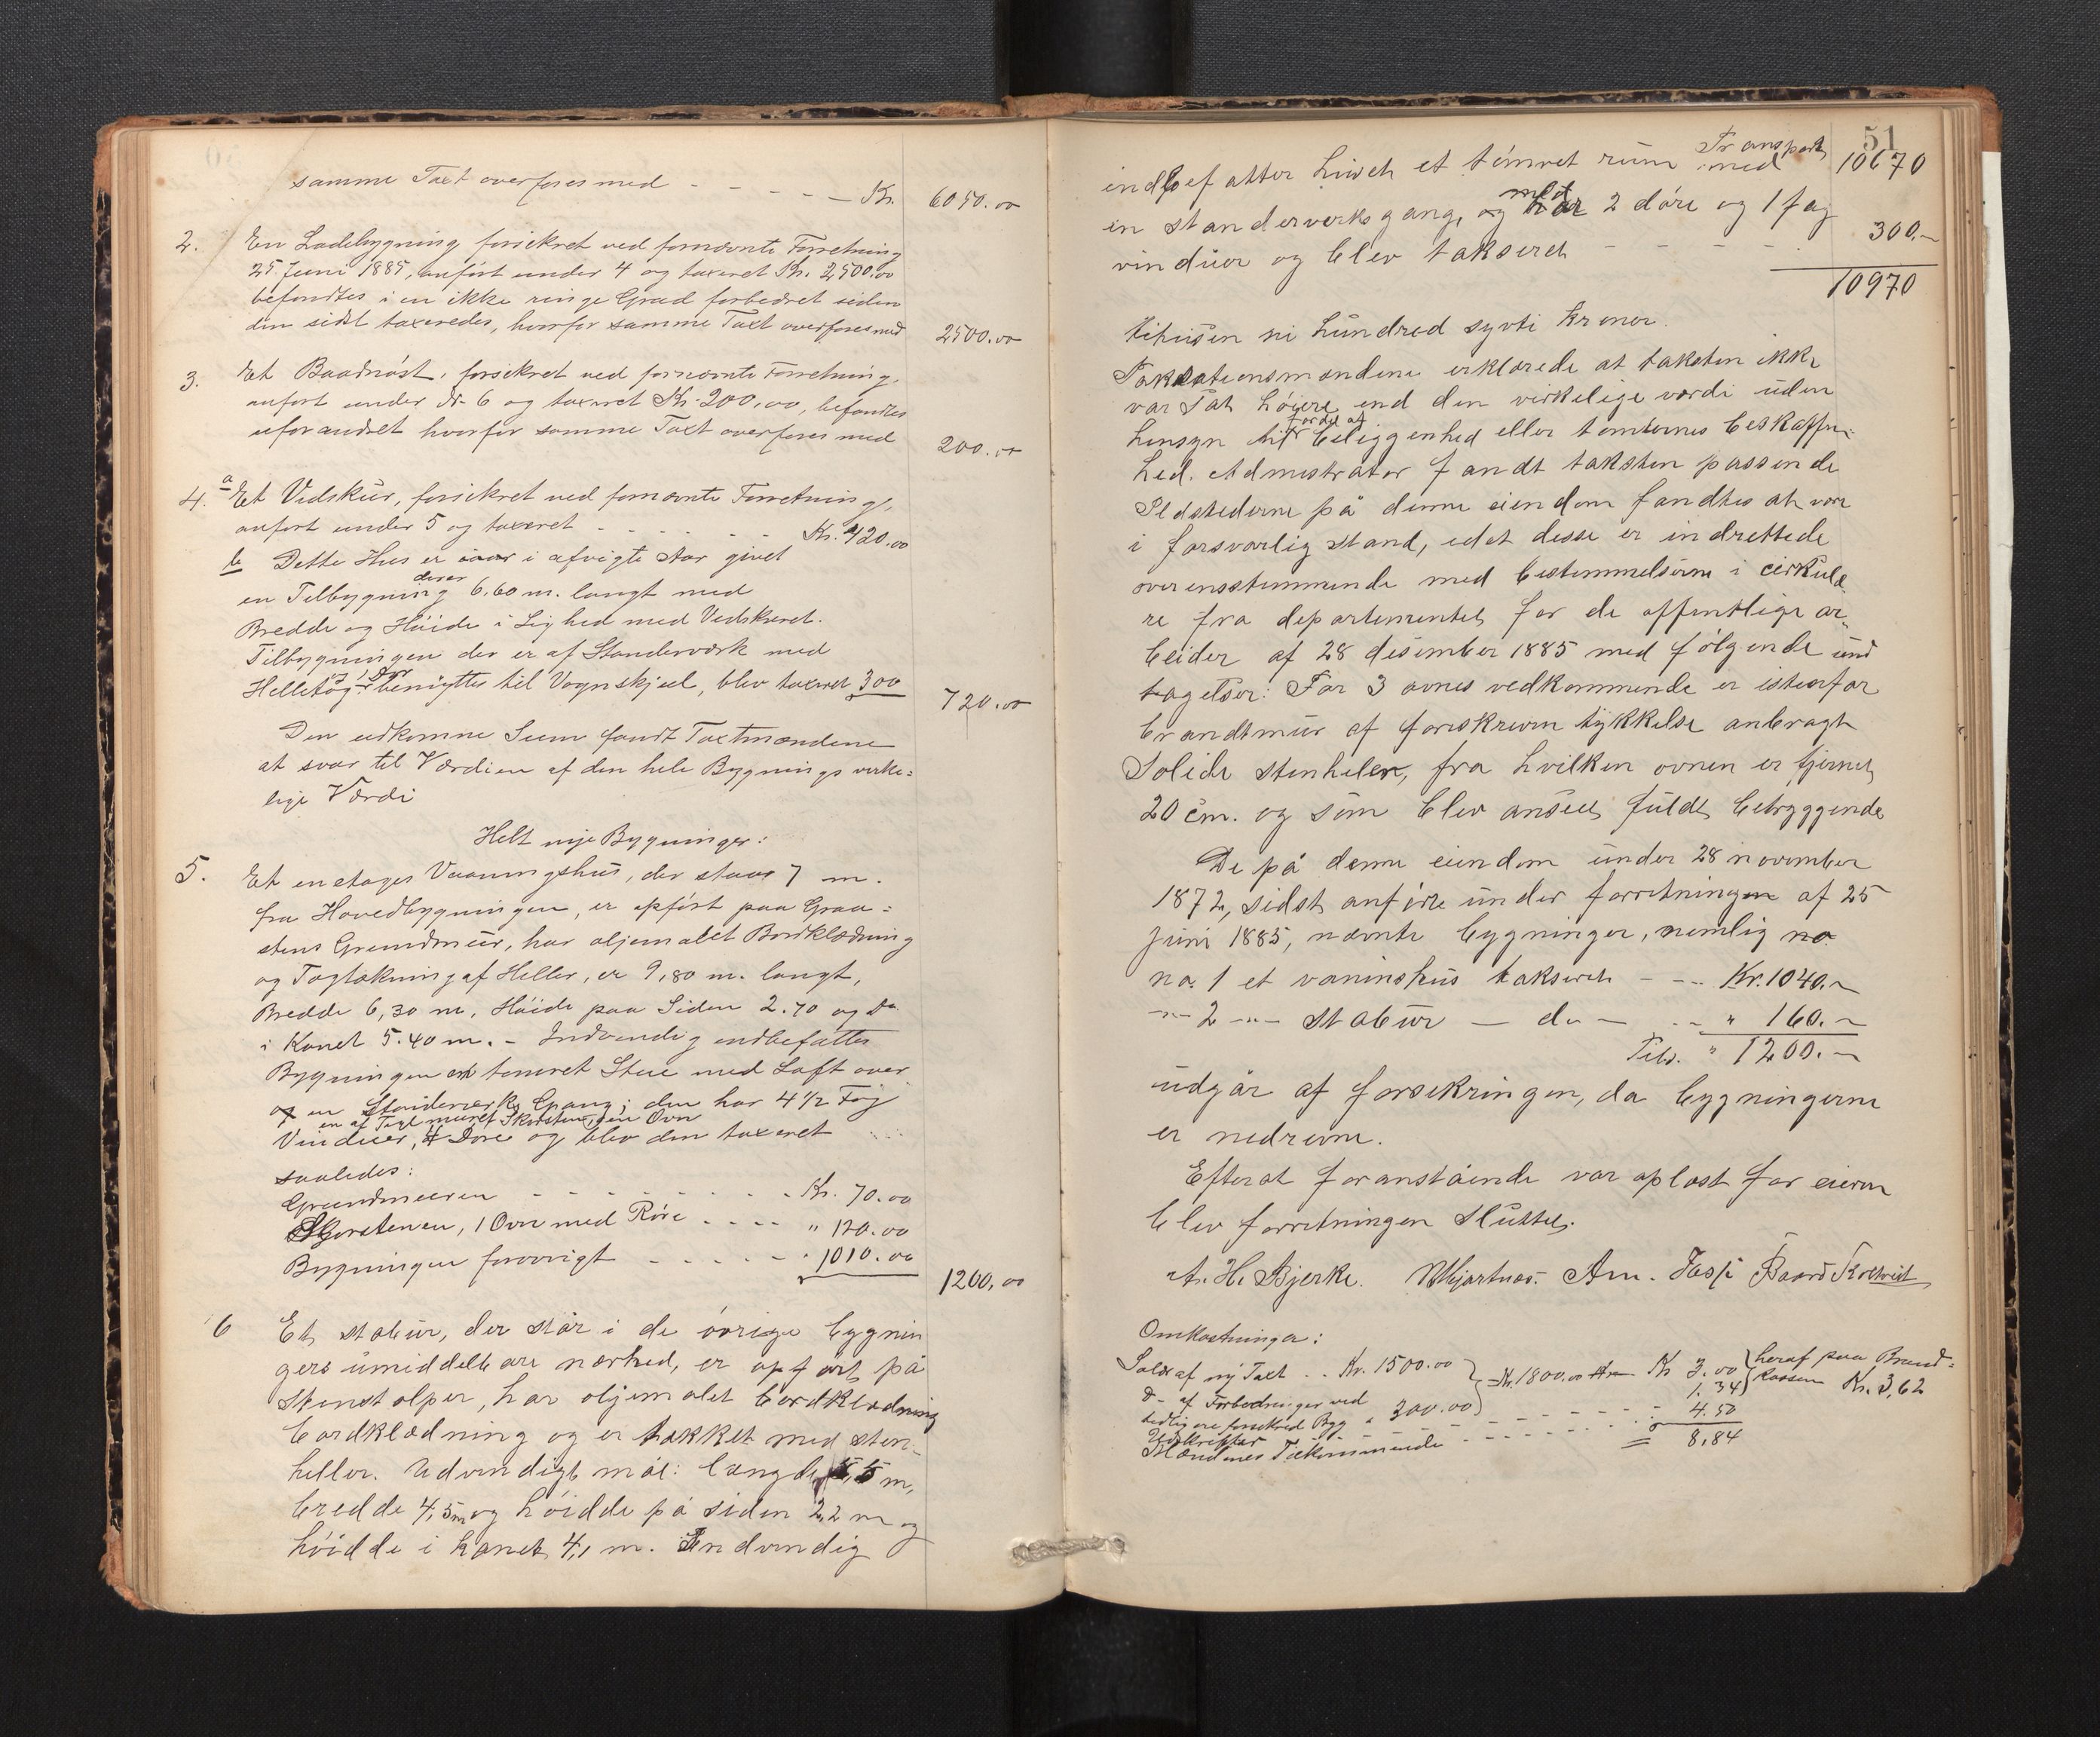 samme Taxt overføres med - - - - - Kr. 6050.00
2. En Ladebygning forsikret ved fornævnte Forretning
25. Juni 1885, anført under 4 og taxeret Kr. 2500.00
befandtes i en ikke ringe Grad forbedret siden
den sidst taxeredes, hvorfor samme Taxt overføres med 2500.00
3. Et Baadnøst, forsikret ved fornævnte Forretning,
anført under Nr 6 og taxeret Kr. 200.00, befandtes
uforandret hvorfor samme Taxt overføres med 200.00
4. a Et Vedskur, forsikret ved fornævnte Forretning,
anført under 5 og taxeret - - - - Kr. 420.00
b Dette Hus er i afvigte Aar givet
en Tilbygning 6.60 m. langt med
Bredde og Høide i Lighed med Vedskuret.
Tilbygningen der er af Standerværk med
og 1 Dør
Helletag benyttes til Vognskjul, blev taxeret 300 720.00
Den udkomne Sum fandt Taxtmændene
at svar til Værdien af den hele Bygnings virke=
lige Værdi
Helt nye Bygninger:
5. Et en etages Vaaningshus, der staar 7 m.
fra Hovedbygningen, er opført paa Graa=
stens Grundmur, har oljemalet Bordklædning
og Tagtækning af Heller, er 9,80 m. langt,
Bredde 6,30 m, Høide paa Siden 2.70 og Do
i Kanet 5.40 m. - Indvendig indbefatter
Bygningen en tømret Stue med Loft over
og en Standerverks Gang; den har 4 1/2 Fag
en af Tegl muret Skorsten, en Ovn
Vinduer, 4 Døre og blev den taxeret
saaledes:
Grundmuren - - - - - - - Kr. 70.00
Skorstenen, 1 Ovn med Rør - - - - " 120.00
Bygningen forøvrigt - - - - - " 1010.00
1200,00
6 Et stabur, der står i de øvrige bygnin
gers umiddelbare nærhed, er opført på
stenstolper, har oljemalet bordklædning
bordklædning og er takket med sten-
heller. Udvendigt mål: længde 5,5 m,
bredde 4,5 m og høidde på siden 2,2 m og
høidde i kanet 4,1 m. Indvendig
51
Transport
indbefatter huset et tømret rum med 10670
med
en standerverks gang, og har 2 døre og 1 fag
vinduer og blev takseret - - - - 300.-
10970
titusen ni hundred sytti kroner.
Taksationsmændene erklærede at taksten ikke
var sat høiere end den virkelige værdi uden
fordel af
hensyn til beliggenhed eller tomternes beskaffen-
hed. Admistrator fandt taksten passende
Ildstederne på denne eiendom fandtes at være
i forsvarlig stand, idet disse er indrettede
overensstemmende med bestemmelserne i cirkulæ
re fra departementet for de offentlige ar-
beider af 28 desember 1885 med følgende und
tagelser: For 3 ovnes vedkommende er istedfor
brandtmur af foreskreven tykkelse anbragt
solide stenheler, fra hvilken ovnen er fjernet
20 cm. og som blev anseet fuldt betryggende
De på denne eiendom under 28 november
1872, sidst anførte under forretningen af 25
juni 1885, nævnte bygninger, nemlig no
no. 1 et vaninshus takseret - - - Kr. 1040.-
-"- 2 -"- stabur - do - - - " 160.-
Tils. " 1200.-
udgår af forsikringen, da bygningerne
er nedrevne.
Efter at foranstående var oplæst for eieren
blev forretningen sluttet.
A. H. Bjerke. Am.
Omkostninger:
Salær af ny Taxt . . Kr. 1500.00 } Kr. 1800.00 Kr 3.00 } heraf paa Brand=
D- af Forbedringer ved 1.34 kassen Kr. 3,62
tidligere forsikred Byg " 300.00
Udskrifter - - - - 4.50
Mændenes Tilkommende - - - -
8,84